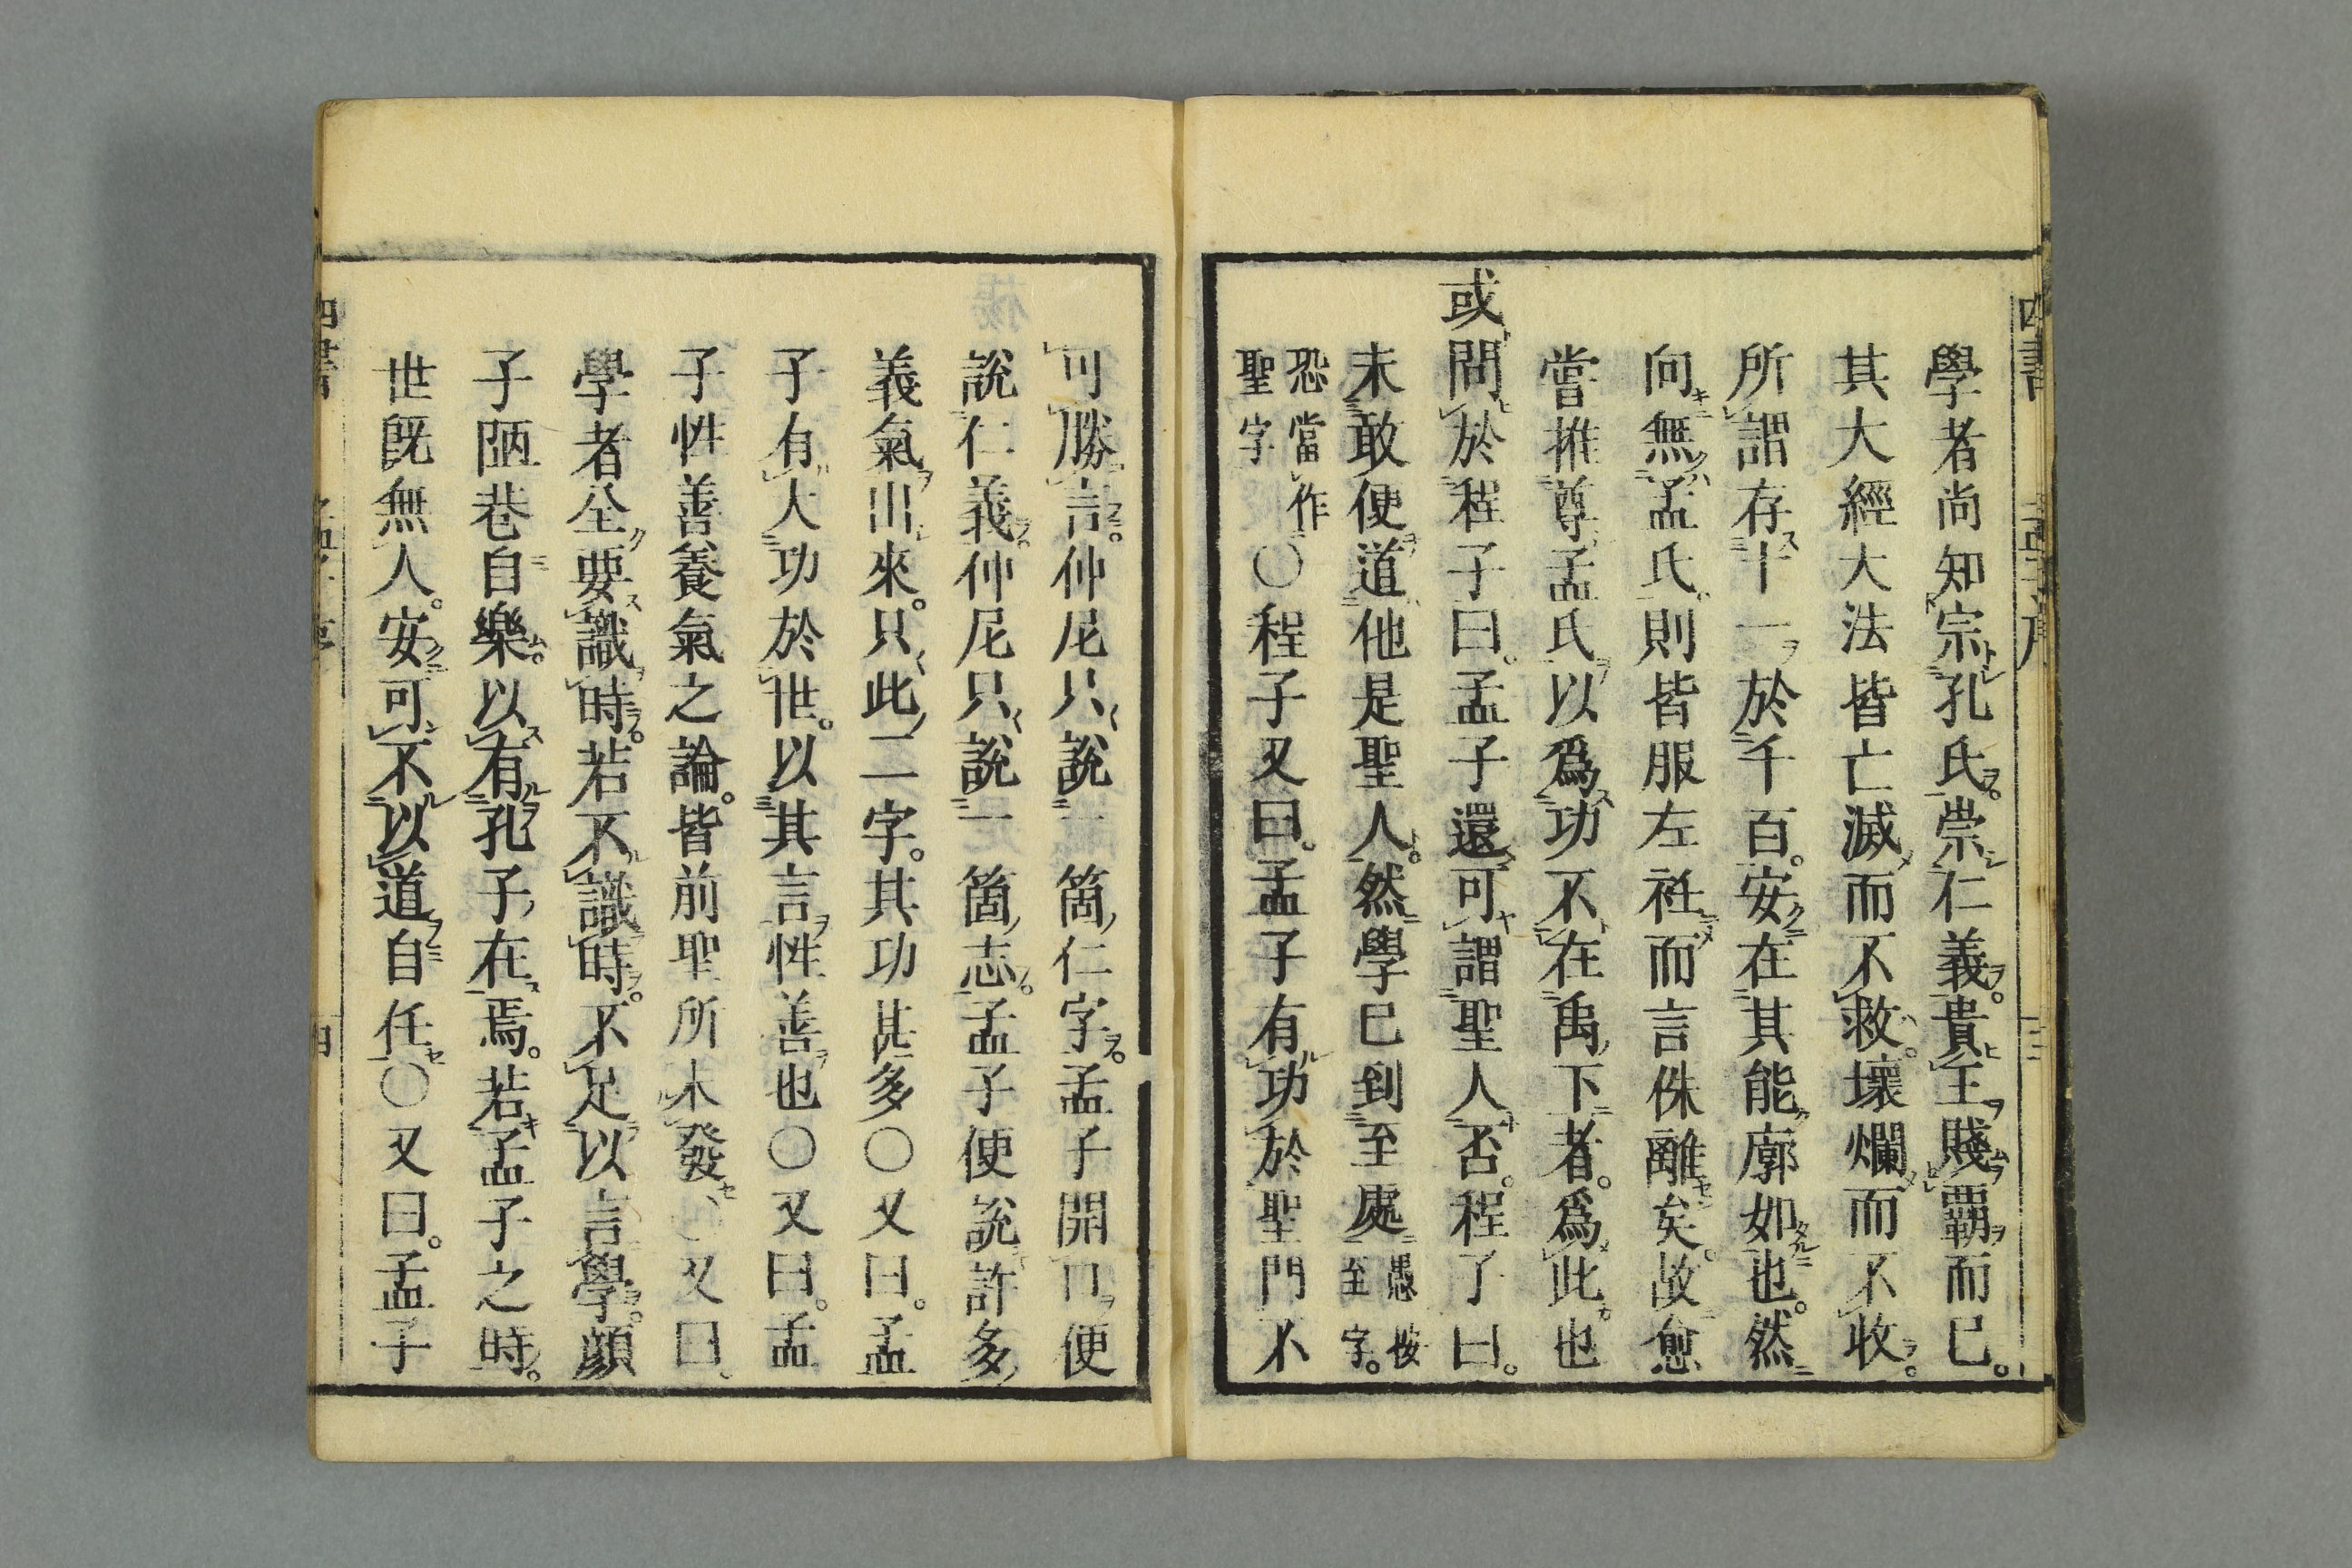 學者尚知宗孔氏。崇仁義。貴王賤覇而已。
其大經大法皆亡滅而不救。壞爛而不收。
所謂存十一於千百。安在其能廓如也。然
向無孟氏。則皆服左衽而言侏離矣。故愈
嘗推尊孟氏以爲功不在禹下者。爲此也
或問於程子曰。孟子還可謂聖人否。程子曰。
未敢便道他是聖人。然學已到至處愚按至字。
恐當作聖字〇程子又曰。孟子有功於聖門不
可勝言。仲尼只說一箇仁字。孟子開口便
說仁義。仲尼只說一箇志。孟子便說許多
義氣出來。只此二字。其功甚多〇又曰。孟
子有大功於世。以其言性善也〇又曰。孟
子性善養氣之論。皆前聖所未發〇又曰。
學者全要識時。若不識時。不足以言學。顔
子陋巷自樂。以有孔子在焉。若孟子之時。
世旣無人。安可不以道自任〇又曰。孟子